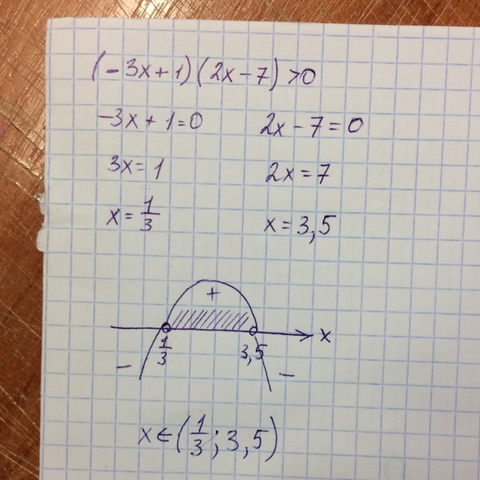 (-3x+1)(2x-7)>0
-3x+1=0 2x-7=0
3x=1 2x=7
x=1/3 x=3,5
+
x
1/3 3,5
- -
x∈(1/3; 3,5)